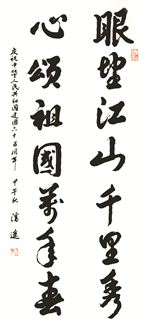 眼望江山千里秀
心颂祖國萬年春
庆祝中华人民共和国建國六十五周年
甲午秋